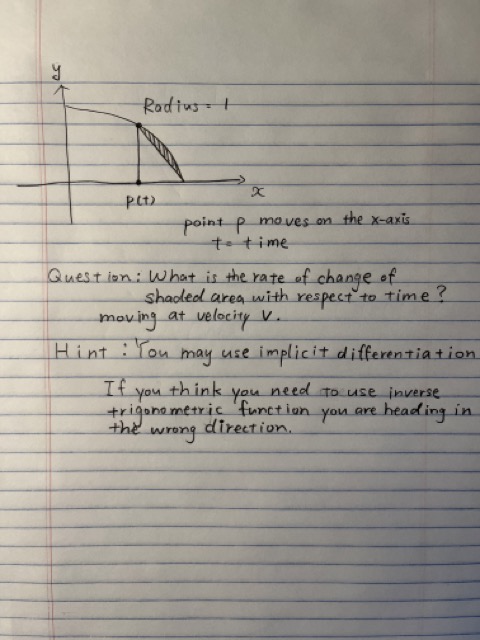 y
Radius = 1
x
P(t)
point p moves on the x-axis
t = time
Question: What is the rate of change of
shaded area with respect to time?
moving at velocity V.
Hint: You may use implicit differentiation
If you think you need to use inverse
trigonometric function you are heading in
the wrong direction.